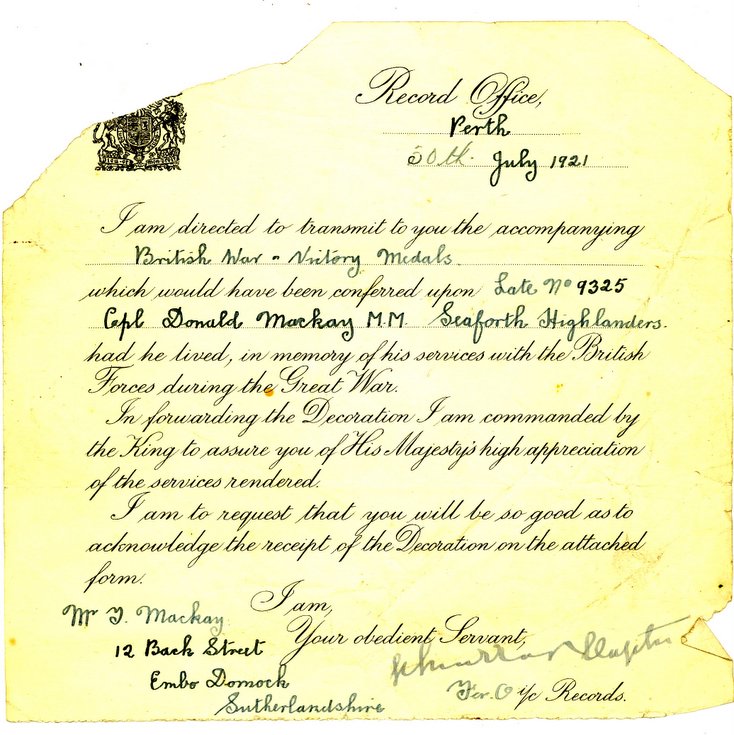 Record Office,
Perth
30th July 1921
I am directed to transmit to you the accompanying
British War & Victory Medals
which would have been conferred upon Late No 9325
Cpl Donald Mackay M.M. Seaforth Highlanders.
had he lived, in memory of his services with the British
Forces during the Great War.
In forwarding the Decoration I am commanded by
the King to assure you of His Majesty's high appreciation
of the services rendered.
I am to request that you will be so good as to
acknowledge the receipt of the Decoration on the attached
form.
I am,
Your obedient Servant,
For O i/c Records.
Mr Mackay
12 Back Street
Embo Dornock
Sutherlandshire